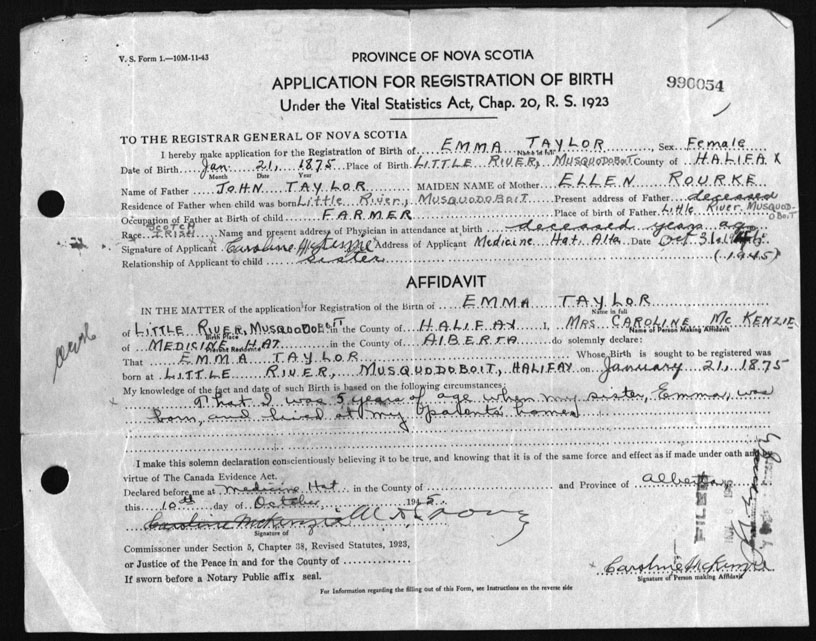 V. S. Form 1.—10M-11-43
PROVINCE OF NOVA SCOTIA
APPLICATION FOR REGISTRATION OF BIRTH
990054
Under the Vital Statistics Act, Chap. 20, R. S. 1923
TO THE REGISTRAR GENERAL OF NOVA SCOTIA
I hereby make application for the Registration of Birth of EMMA TAYLOR, Sex Female
Name in full
Date of Birth Jan. 21, 1875 Place of Birth LITTLE RIVER, MUSQUODOBOIT County of HALIFAX
Month Date Year
Name of Father JOHN TAYLOR MAIDEN NAME of Mother ELLEN ROURKE
Residence of Father when child was born Little River, MUSQUODOBOIT Present address of Father deceased
Occupation of Father at Birth of child FARMER Place of birth of Father Little River MUSQUODOBOIT
Race SCOTCH IRISH Name and present address of Physician in attendance at birth deceased years ago
Signature of Applicant Caroline McKenzie Address of Applicant Medicine Hat, Alta Date Oct 31st
Relationship of Applicant to child sister (1945)
AFFIDAVIT
IN THE MATTER of the application for Registration of the Birth of EMMA TAYLOR
Name in full
of LITTLE RIVER, MUSQUODOBOIT in the County of HALIFAX I, MRS CAROLINE MCKENZIE
Birth Place Name of Person Making Affidavit
of MEDICINE HAT in the County of ALBERTA do solemnly declare:
Present Residence
That EMMA TAYLOR Whose Birth is sought to be registered was
born at LITTLE RIVER, MUSQUODOBOIT, HALIFAX on January 21, 1875
My knowledge of the fact and date of such Birth is based on the following circumstances:
That I was 5 years of age when my sister, Emma, was
born, and lived at my parents' home
I make this solemn declaration conscientiously believing it to be true, and knowing that it is of the same force and effect as if made under oath and by
virtue of The Canada Evidence Act.
Declared before me at Medicine Hat in the County of and Province of Alberta
this 10th day of October 1945
Caroline McKenzie
Signature of
FILED
Commissioner under Section 5, Chapter 38, Revised Statutes, 1923,
or Justice of the Peace in and for the County of
If sworn before a Notary Public affix seal.
Caroline McKenzie
Signature of Person making Affidavit
For Information regarding the filling out of this Form, see Instructions on the reverse side